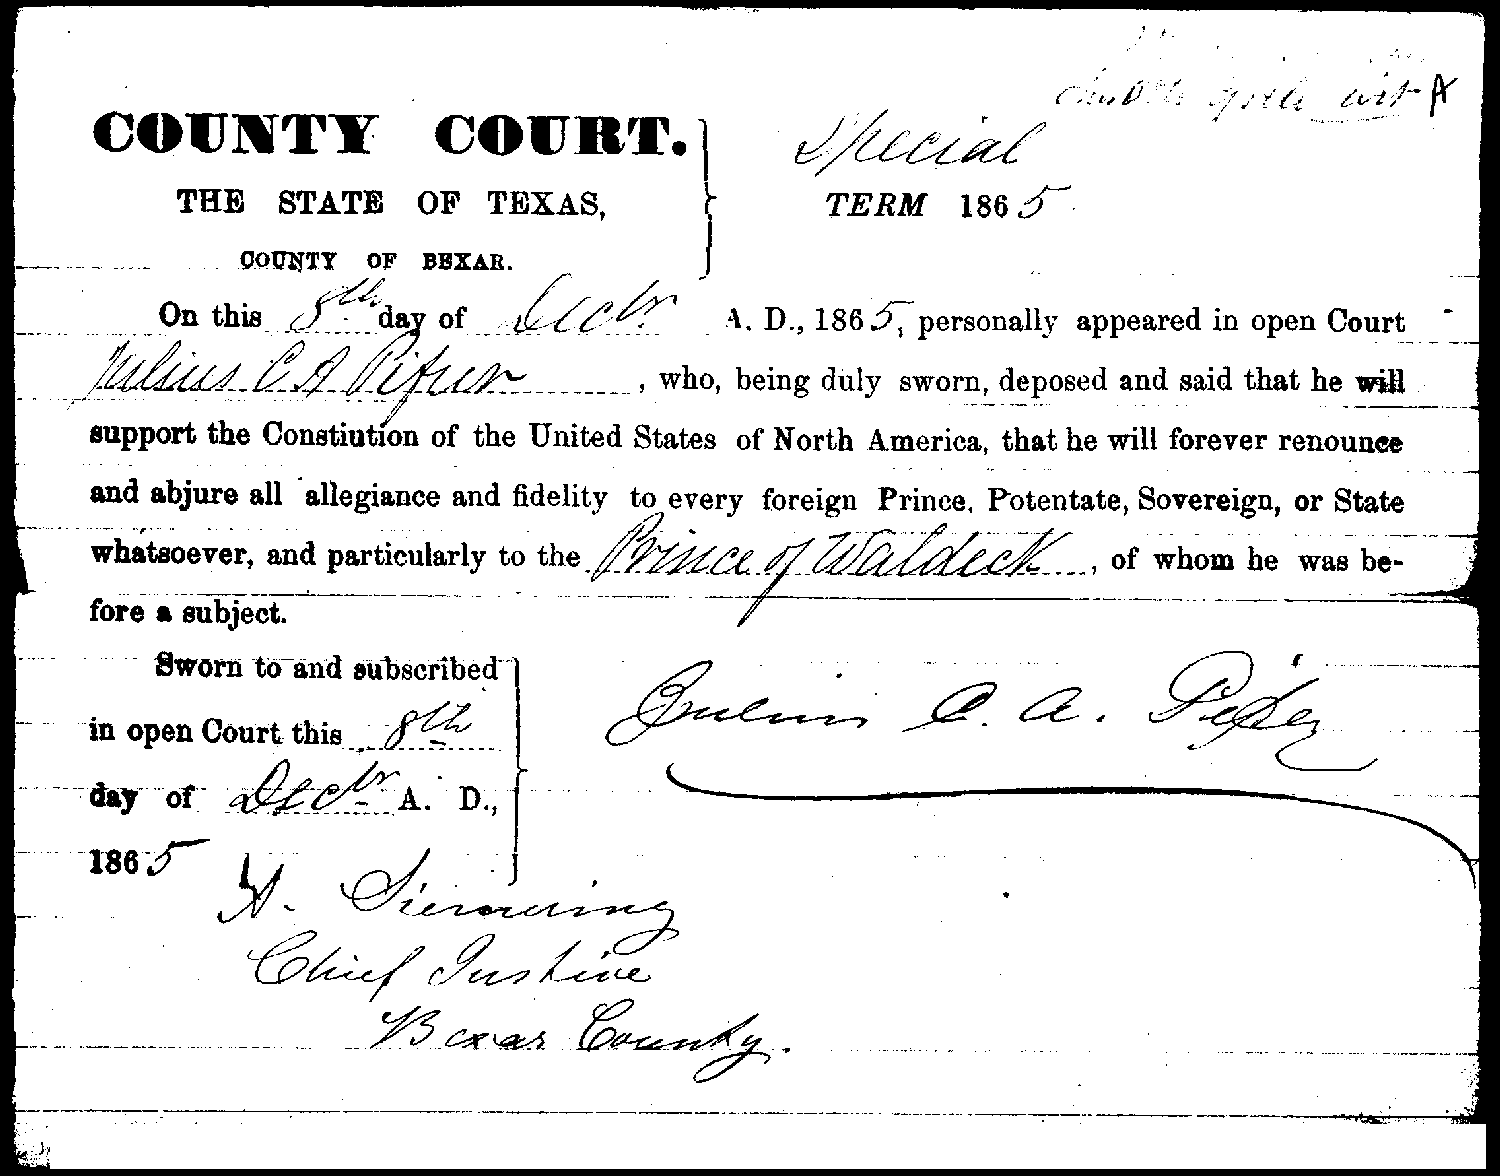 COUNTY COURT.
THE STATE OF TEXAS,
COUNTY OF BEXAR.
Special
TERM 1865
On this 8th day of Decbr. A. D., 1865, personally appeared in open Court
Julius C A , who, being duly sworn, deposed and said that he will
support the Constiution of the United States of North America, that he will forever renounce
and abjure all allegiance and fidelity to every foreign Prince, Potentate, Sovereign, or State
whatsoever, and particularly to the Prince of Waldeck, of whom he was be-
fore a subject.
Sworn to and subscribed
in open Court this 8th
day of Decbr A. D.,
1865
Julius C. A.
A. Siemering
Chief Justice
Bexar County.